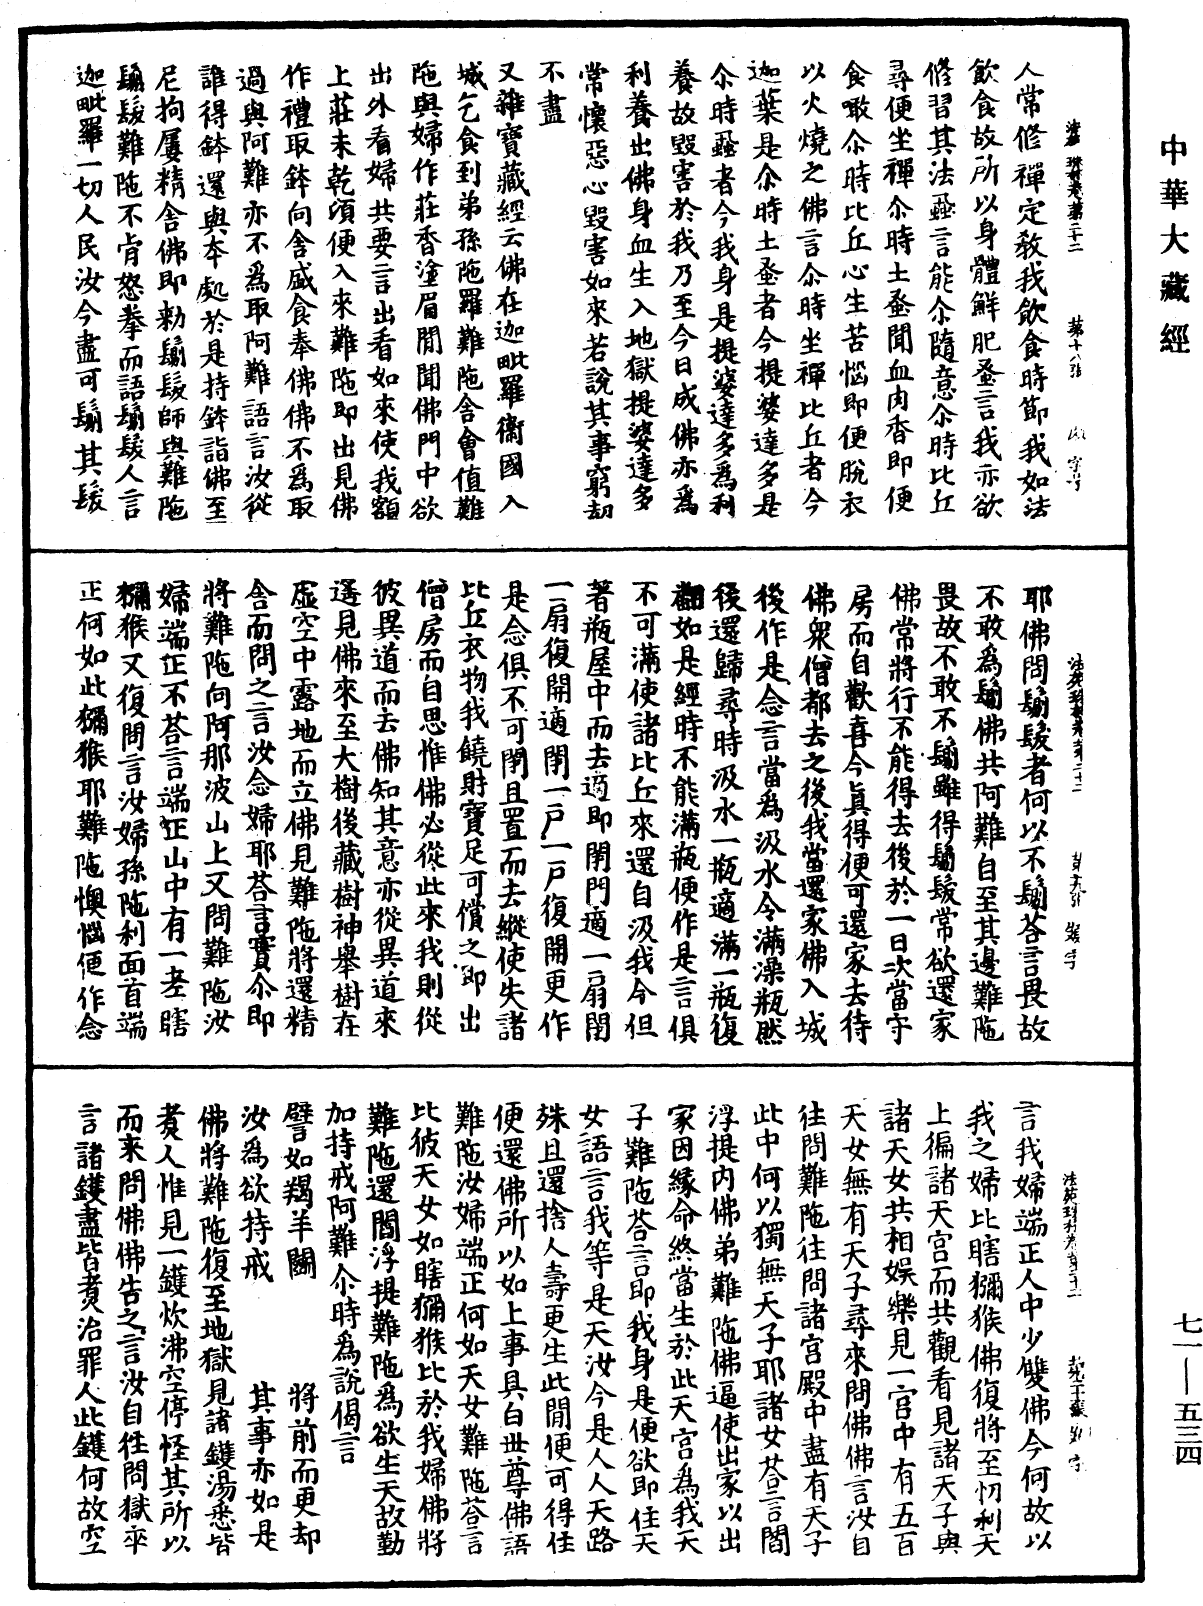 中華大藏經
人常修禪定教我飲食時節我如法
飲食故所以身體鮮肥蚤言我亦欲
修習其法蝨言能尒隨意尒時比丘
尋便坐禪尒時土蚤聞血肉香即便
食噉尒時比丘心生苦惱即便脫衣
以火燒之佛言尒時坐禪比丘者今
迦葉是尒時土蚤者今提婆達多是
尒時蝨者今我身是提婆達多為利
養故毀害於我乃至今日成佛亦為
利養出佛身血生入地獄提婆達多
常懷惡心毀害如來若說其事窮劫
不盡
又雜寶藏經云佛在迦毗羅衛國入
城乞食到弟孫陁羅難陁舍會值難
陁與婦作莊香塗眉間聞佛門中欲
出外看婦共要言出看如來使我額
上莊未乾頃便入來難陁即出見佛
作禮取鉢向舍盛食奉佛佛不為取
過與阿難亦不為取阿難語言汝從
誰得鉢還與本處於是持鉢詣佛至
尼拘屢精舍佛即勑鬀髮師與難陁
鬀髮難陁不肯怒拳而語鬀髮人言
迦毗羅一切人民汝今盡可鬀其髮
耶佛問鬀髮者何以不鬀荅言畏故
不敢為鬀佛共阿難自至其邊難陁
畏故不敢不鬀雖得鬀髮常欲還家
佛常將行不能得去後於一日次當守
房而自歡喜今真得便可還家去待
佛衆僧都去之後我當還家佛入城
後作是念言當為汲水令滿澡瓶然
後還歸尋時汲水一瓶適滿一瓶復
翻如是經時不能滿瓶便作是言俱
不可滿使諸比丘來還自汲我今但
著瓶屋中而去適即閉門適一扇閉
一扇復開適閉一戶一戶復開更作
是念俱不可閉且置而去縱使失諸
比丘衣物我饒財寶足可償之即出
僧房而自思惟佛必從此來我則從
彼異道而去佛知其意亦從異道來
遙見佛來至大樹後藏樹神舉樹在
虛空中露地而立佛見難陁將還精
舍而問之言汝念婦耶荅言實尒即
將難陁向阿那波山上又問難陁汝
婦端正不荅言端正山中有一老瞎
獼猴又復問言汝婦孫陁利面首端
正何如此獼猴耶難陁懊惱便作念
言我婦端正人中少雙佛今何故以
我之婦比瞎獼猴佛復將至忉利天
上徧諸天宮而共觀看見諸天子與
諸天女共相娛樂見一宮中有五百
天女無有天子尋來問佛佛言汝自
往問難陁往問諸宮殿中盡有天子
此中何以獨無天子耶諸女荅言閻
浮提內佛弟難陁佛逼使出家以出
家因緣命終當生於此天宮為我天
子難陁荅言即我身是便欲即住天
女語言我等是天汝今是人人天路
殊且還捨人壽更生此間便可得住
便還佛所以如上事具白世尊佛語
難陁汝婦端正何如天女難陁荅言
比彼天女如瞎獼猴比於我婦佛將
難陁還閻浮提難陁為欲生天故勤
加持戒阿難尒時為說偈言
譬如羯羊鬬　將前而更却
汝為欲持戒　其事亦如是
佛將難陁復至地獄見諸鑊湯悉皆
煑人惟見一鑊炊沸空停怪其所以
而來問佛佛告之言汝自往問獄卒
言諸鑊盡皆煑治罪人此鑊何故空
七一—五三四